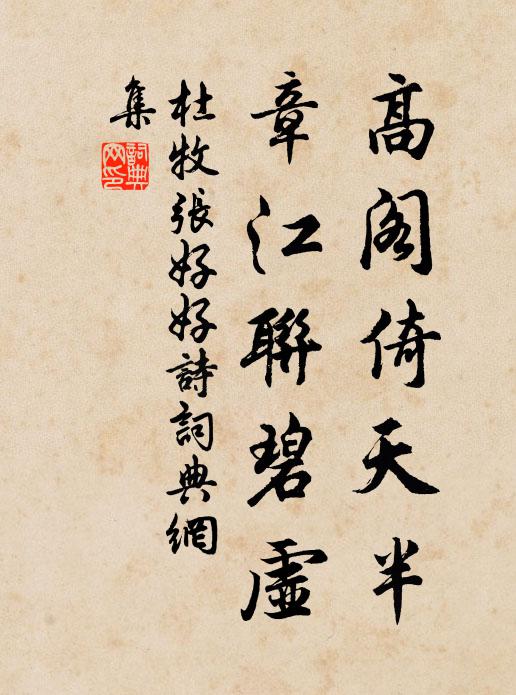 高阁倚天半
章江聯碧虛
杜牧張好好詩詞典網
集
詞典
網印